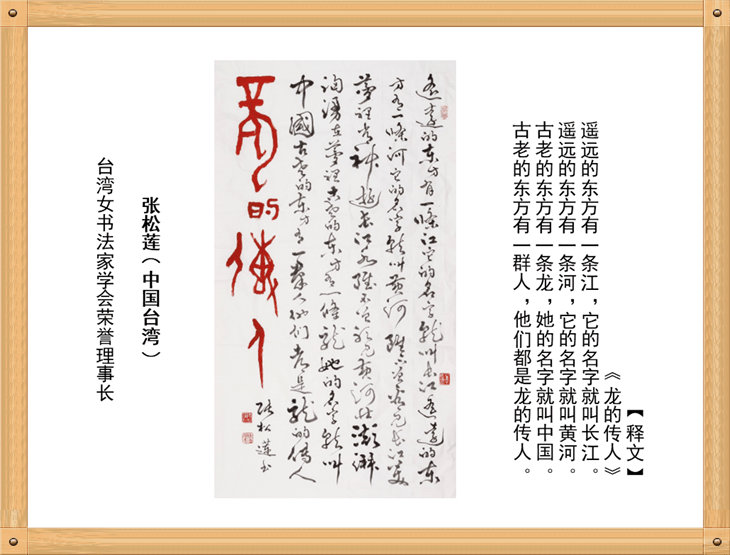 【释文】
《龙的传人》
遥远的东方有一条江，它的名字就叫长江。
遥远的东方有一条河，它的名字就叫黄河。
古老的东方有一条龙，她的名字就叫中国。
古老的东方有一群人，他们都是龙的传人。
遙遠的东方有一條江它的名字就叫长江遙遠的东
方有一條河它的名字就叫黄河雖不曾看見长江美
夢裡常神遊长江水雖不曾聽見黄河壯澎湃
洶湧在夢裡古老的东方有一條龍她的名字就叫
中國古老的东方有一羣人他们都是龍的傳人
龍的傳人
张松蓮书
张松莲（中国台湾）
台湾女书法家学会荣誉理事长